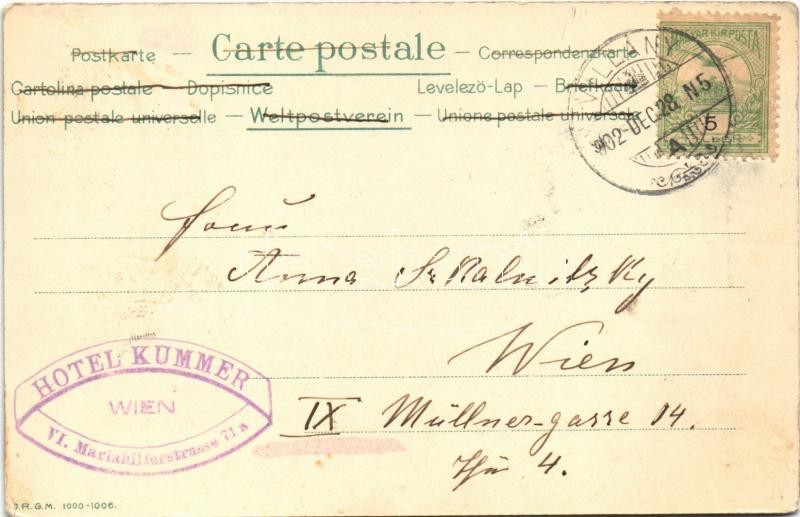 Postkarte – Carte postale – Correspondenzkarte
Cartolina postale – Dopisnice Levelező-Lap – Briefkaart
Union postale universelle – Weltpostverein – Unione postale universale
MAGYAR KIR. POSTA
5
VILLÁNY
902-DEC.28. N5
A
Anna Skalnitzky
Wien
IX Müllner-gasse 14.
Thür 4.
HOTEL KUMMER
WIEN
VI. Mariahilferstrasse 71 a
D.R.G.M. 1000-1006.